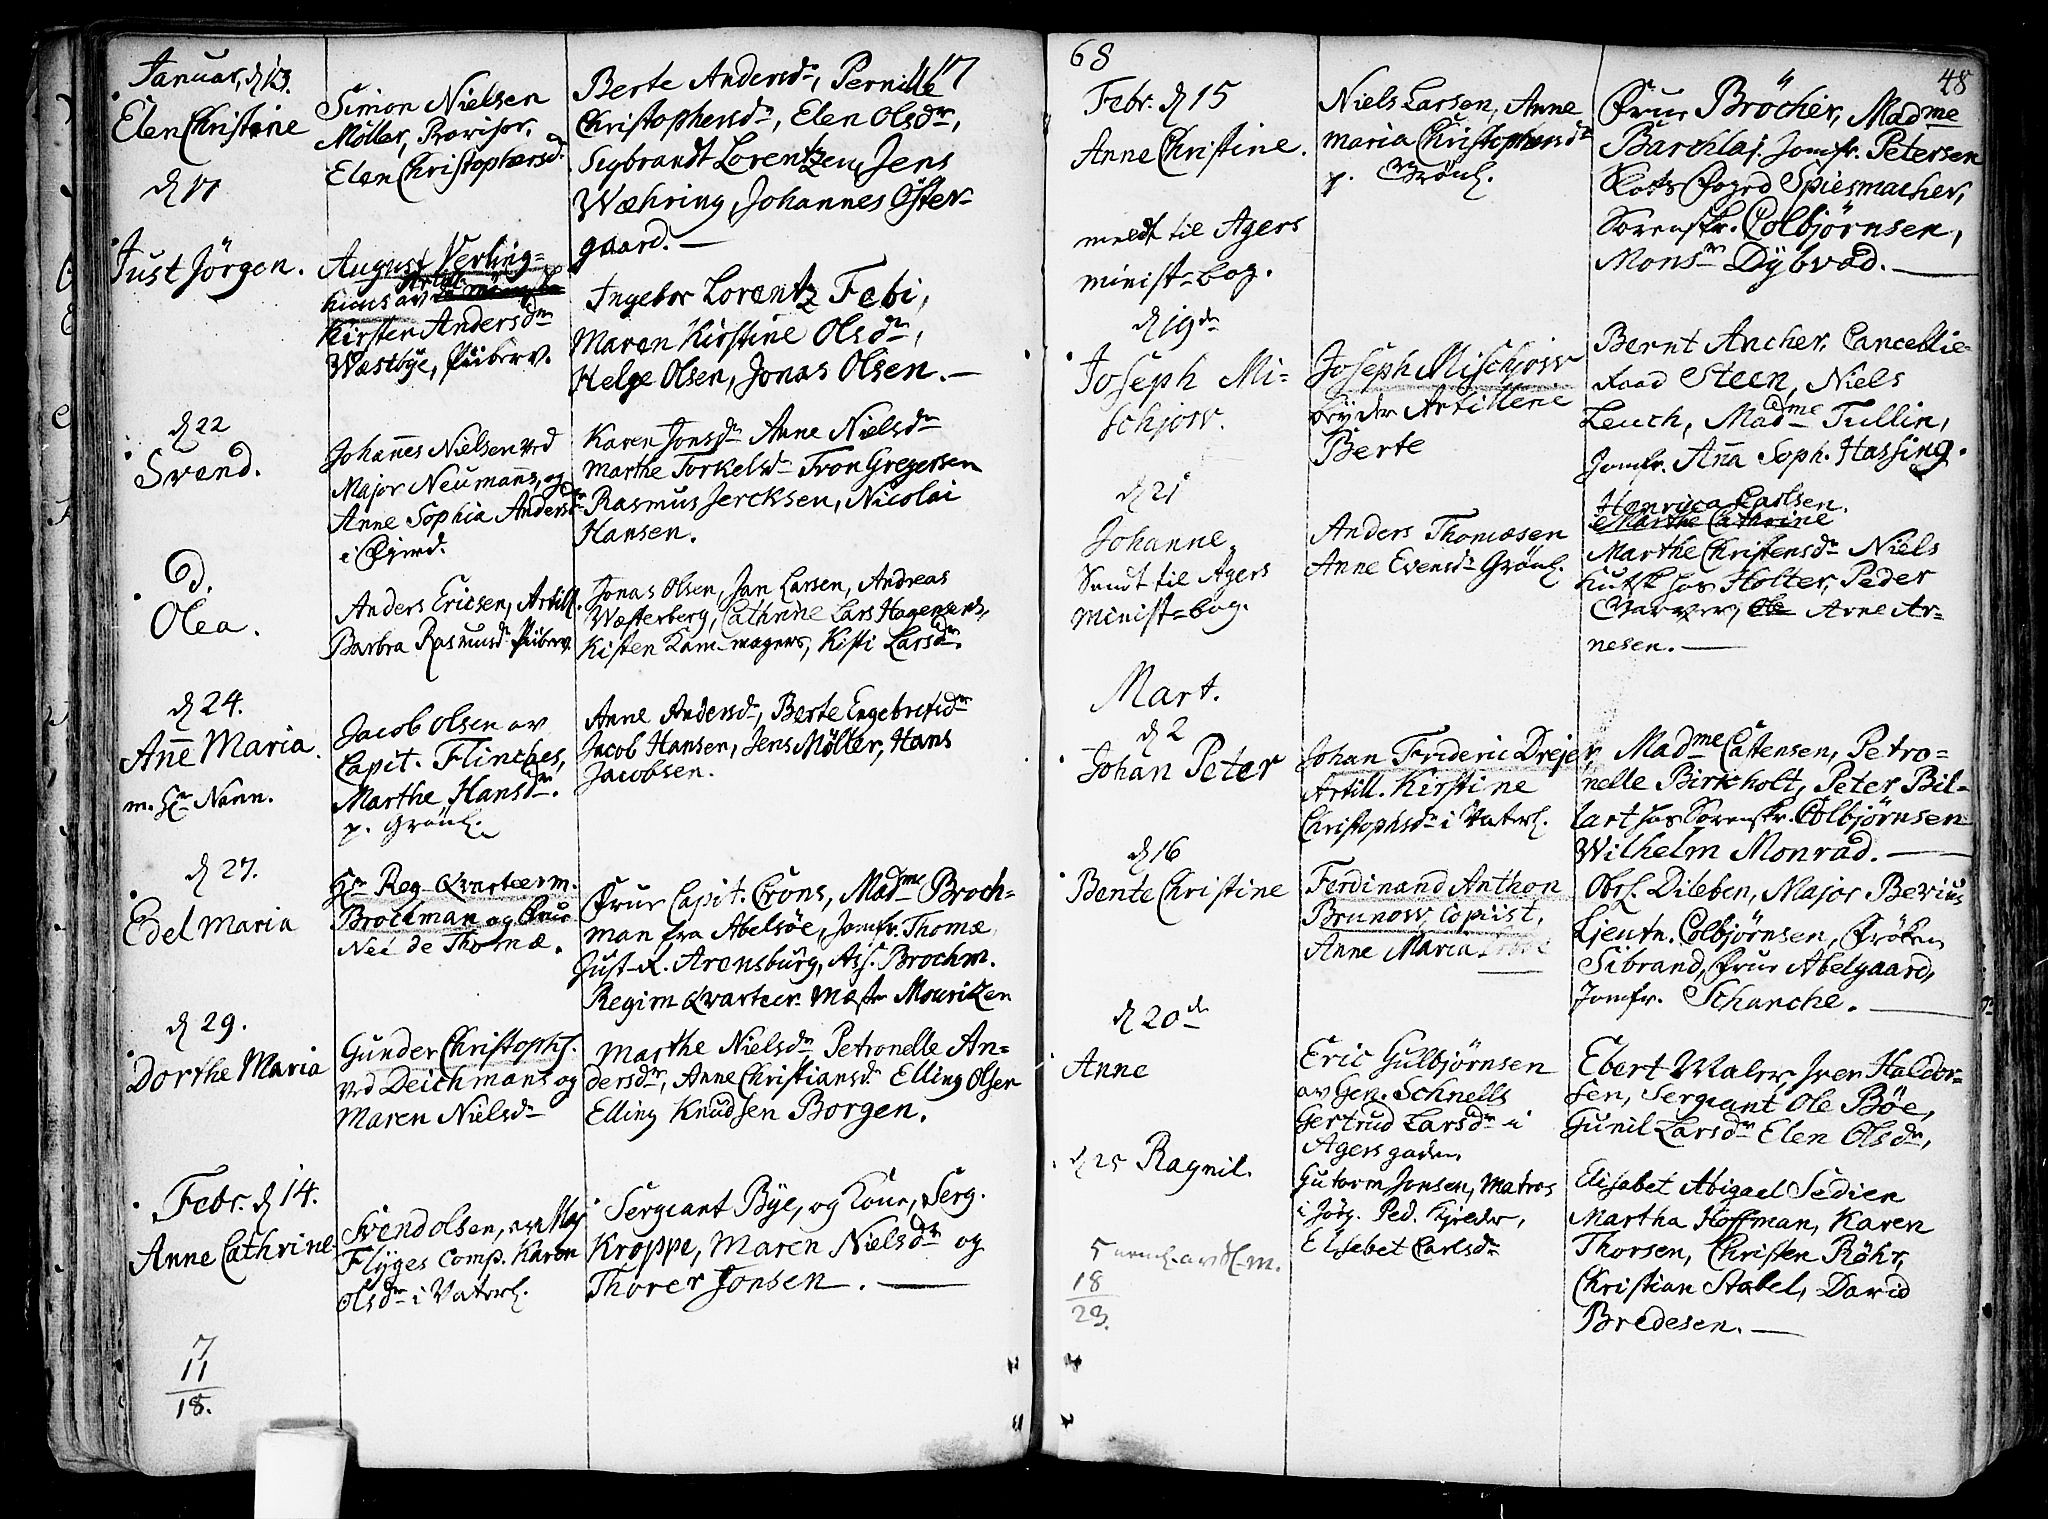 17
Januar, d 13.
Elen Christine
Simon Nielsen
Møller, Provisor,
Elen Christophersd.
Berte Andersdr, Pernille
Christophersdr, Elen Olsdr,
Sybrandt Lorentzen, Jens
Wæhring, Johannes Øster-
gaard. —
d 17
Just Jörgen.
August Verling=
Artill.
Kirsten Andersdr
Wæstbye, Piiberv.
Ingebor Lorentz Febi,
Maren Kirstine Olsdr,
Helge Olsen, Jonas Olsen. —
d 22
Svend.
Johañes Nielsen ved
Major Neumañs, og
Anne Sophia Andersdr
i Fjerd.
Karen Jonsdr Anne Nielsdr
Marthe Torkelsdr Tron Gregersen
Rasmus Jercksen, Nicolai
Hansen.
d.
Olea.
Anders Ericsen, Artill.
Barbra Rasmusdr Piiberv.
Jonas Olsen, Jan Larsen, Andreas
Wæsterberg, Cathrine Lars Hagensens,
Kisten Kam-magers, Kisti Larsdr.
d 24.
Añe Maria.
m. Hr Nann.
Jacob Olsen av
Capit. Flinches,
Marthe Hansdr.
p. Grönl.
Anne Andersdr, Berte Engebretsdr
Jacob Hansen, Jens Møller, Hans
Jacobsen.
d 27.
Edel Maria
Hr Reg-Qvarteerm.
Brochman og Frue
Née de Thomæ.
Frue Capit. Crons, Madme Broch=
man fra Abelsöe, Jomfr. Thomæ,
Gust-d. Arensburg, Ass. Brochm.
Regim Qvarteer Mæstr Mouritzen
d 29.
Dorthe Maria
Gunder Christophs.
ved Deichmans og
Maren Nielsdr
Marthe Nielsdr Petronelle An=
dersdr, Anne Christiansdr Elling Olsen
Elling Knudsen Borgen.
Febr. d 14.
Anne Cathrine
Svend Olsen, av Maj
Flyges Comp. Karen
Olsdr i Vaterl.
Sergeant Bye, og Kone, Serg.
Kroppe, Maren Nielsdr og
Thorer Jonsen. —
7
11
18.
68
48
Febr. d 15
Anne Christine.
meldt til Agers
minist-bog.
Niels Larsen, Anne
Maria Christophersdr
p. Grönl.
Frue Bröcher, Madme
Barchlaj. Jomfr. Petersen
Slots Foged Spiesmacher,
Sorenskr. Colbjørnsen,
Monsr Dybvad. —
d 19de
Joseph Mi=
schjow.
Joseph Mischjow
ved Artillerie
Berte
Bernt Ancher, Cancellie-
Raad Steen, Niels
Leuch, Madme Tullin,
Jomfr. Aña Soph. Hassing.
d 21
Johanne.
Sendt til Agers
minist-bog.
Anders Thomæsen
Anne Evensdr Grönl.
Henrica Carlsen.
Marthe Cathrine
Marthe Christensdr Niels
Kudsk hos Holter, Peder
Garver, Ole Arne Ar-
nesen. —
Mart.
d 2
Johan Peter
Johan Frideric Drejer,
Artill. Kirstine
Christophsdr i Vaterl.
Madme Castensen, Petro=
nelle Birkholt, Peter Bil-
lart hos Sorenskr. Colbjörnsen
Wilhelm Monrad. —
d 16
Bente Christine
Ferdinand Anthon
Brunow Copiist,
Anne Maria
Obrl. Dileben, Major Bevius
Ljeutn. Colbjørnsen, Fröken
Sibrand, Frue Abelgaard,
Jomfr. Schanche. —
d 20de
Anne
Eric Gulbjörnsen
av Gen. Schnells
Gertrud Larsdr i
Agersgaden.
Ebert Maler, Iver Haldor-
sen, Sergeant Ole Böe,
Gunil Larsdr Elen Olsdr,
d 25 Ragnil.
Gutorm Jonsen, Matros
i Jörg. Ped. Kjreder,
Elisebet Carlsdr
Elisabet Abigael Sedien
Martha Hoffman, Karen
Thorsen, Christen Röhr,
Christian Stabel, David
Bredesen. —
5
18
23.